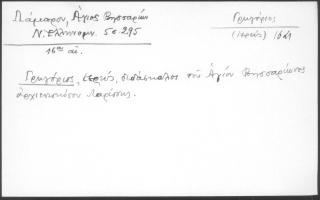 Λάμπρου, Άγιος Βησσαρίων
Ν. Ελληνομν. 5σ. 295
16ος αἰ.
Γρηγόριος
(ἱερεύς) 1621
Γρηγόριος, ἱερεύς, διδάσκαλος τοῦ Ἁγίου Βησσαρίωνος
ἀρχιεπισκόπου Λαρίσσης.